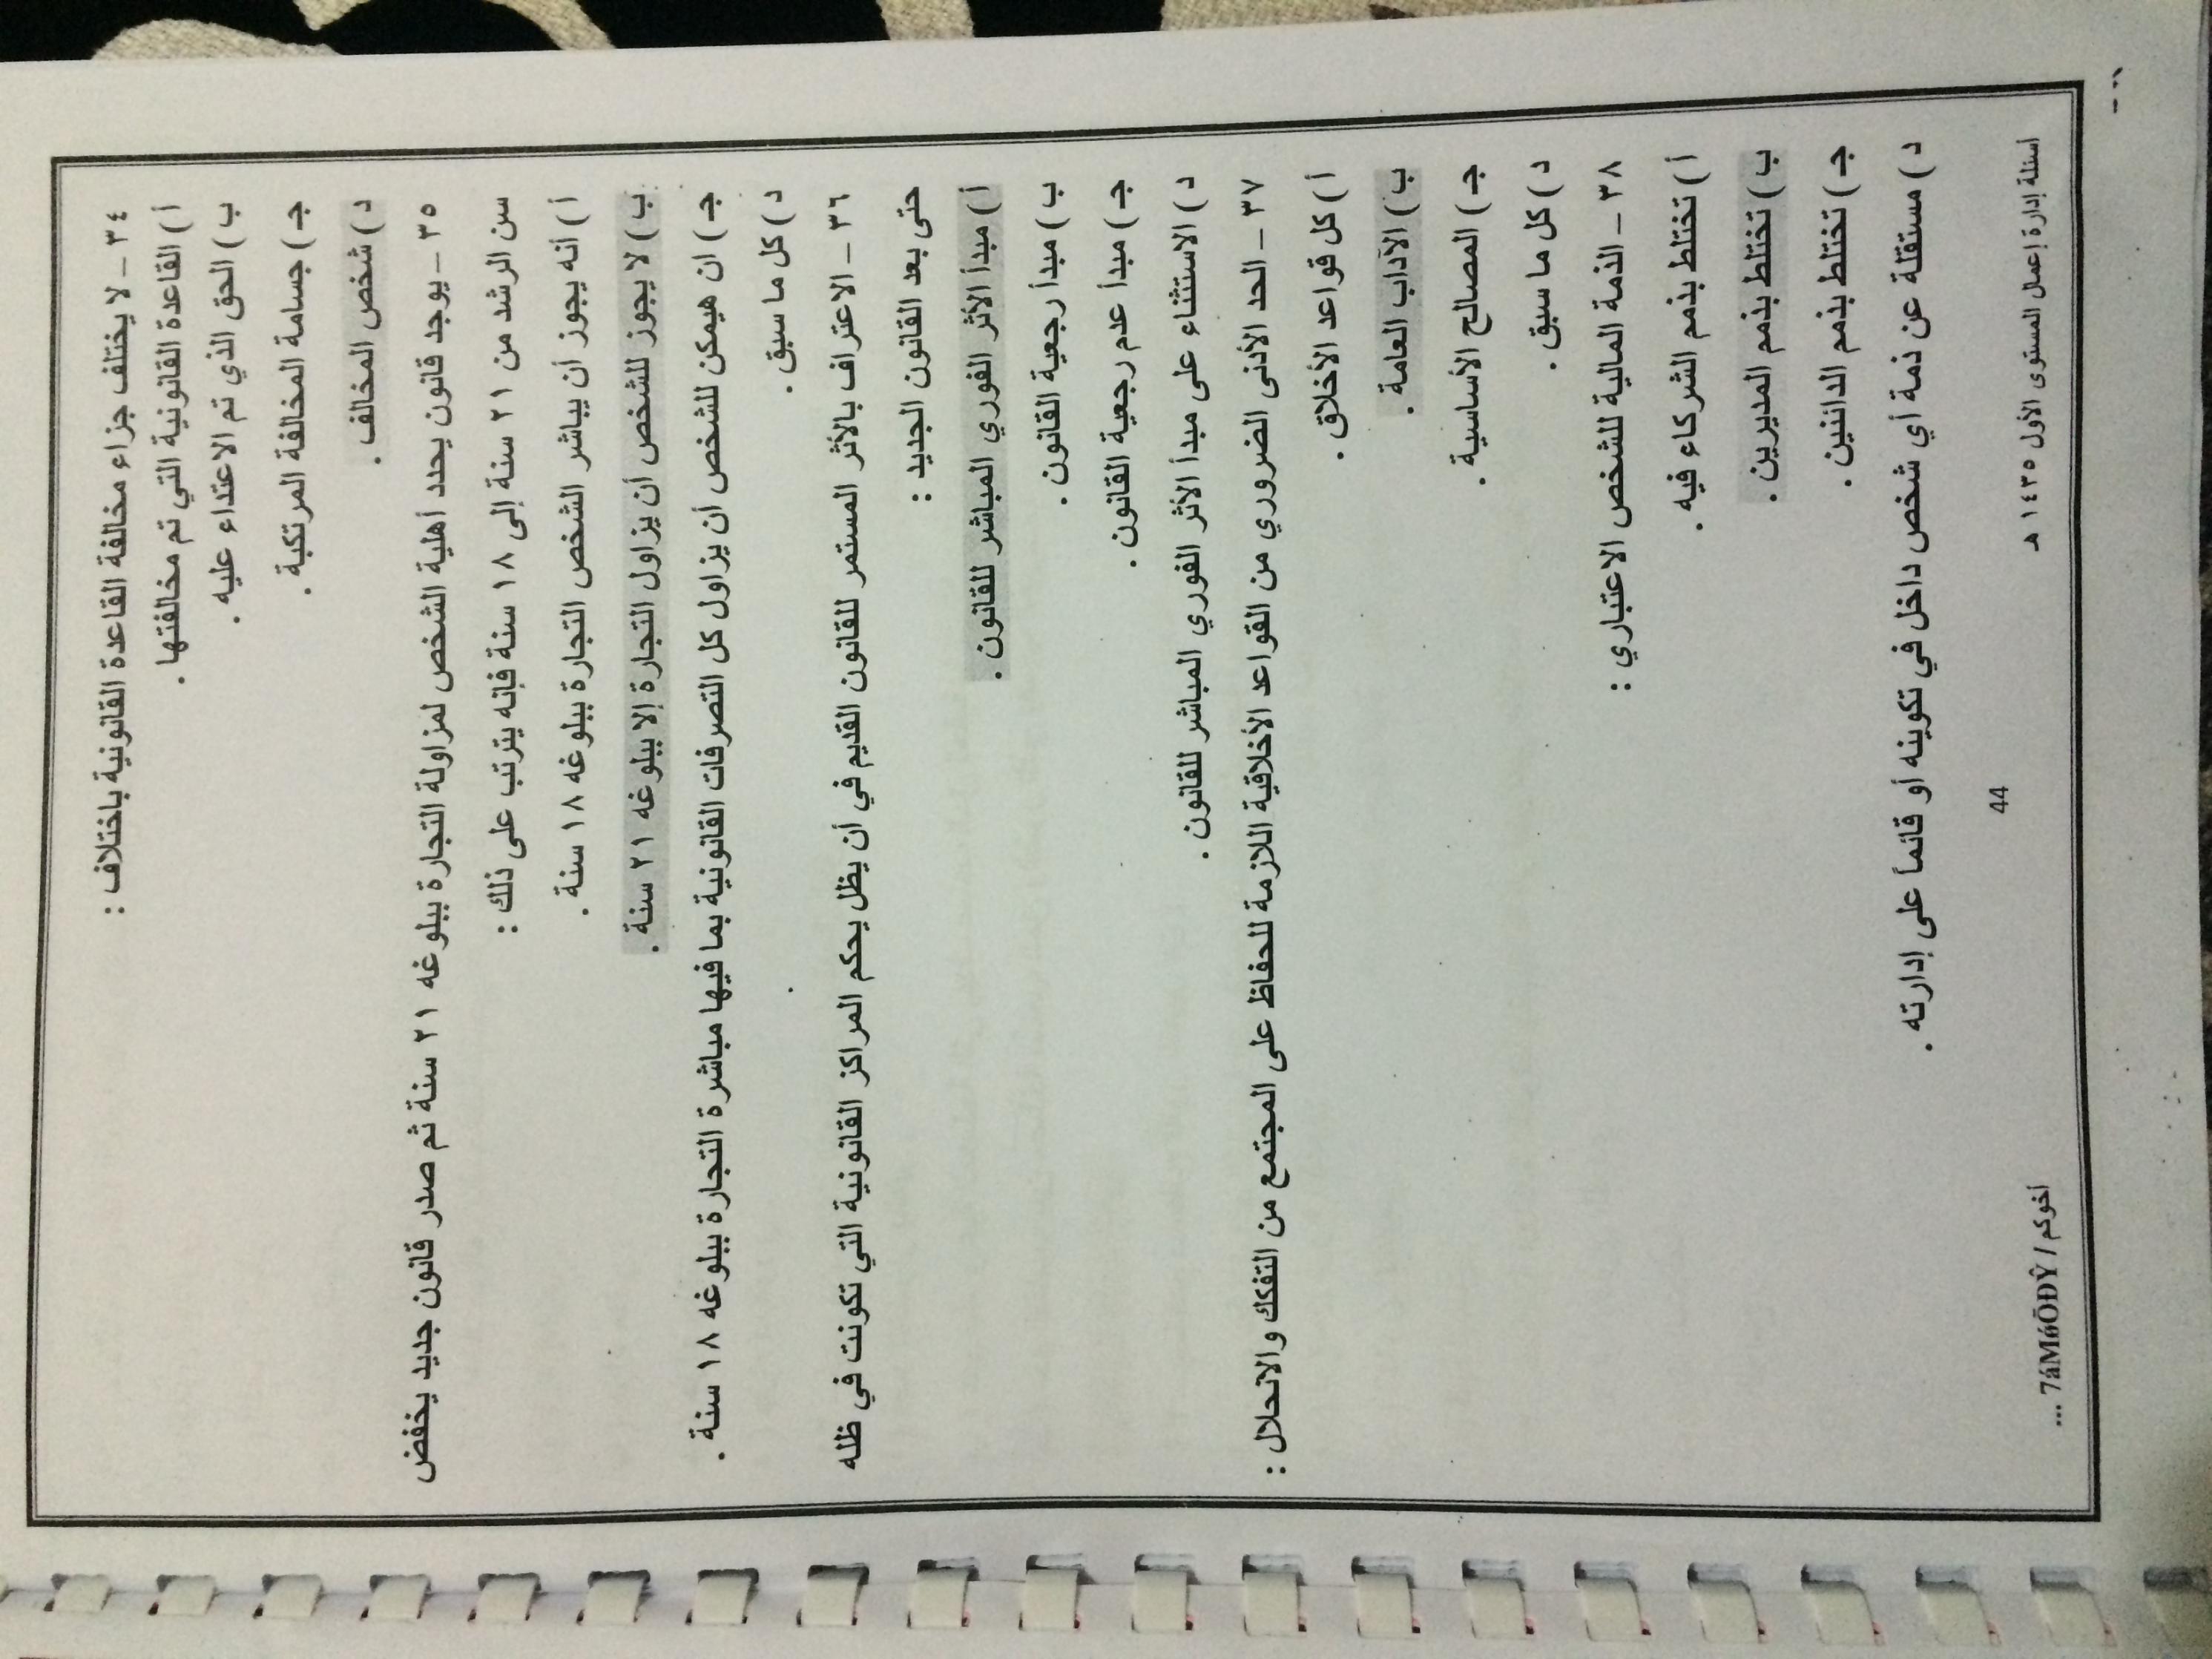 ٣٤ – لا يختلف جزاء مخالفة القاعدة القانونية باختلاف :
أ ) القاعدة القانونية التي تم مخالفتها .
ب ) الحق الذي تم الاعتداء عليه .
جـ ) جسامة المخالفة المرتكبة .
د ) شخص المخالف .
٣٥ – يوجد قانون يحدد أهلية الشخص لمزاولة التجارة ببلوغه ٢١ سنة ثم صدر قانون جديد يخفض
سن الرشد من ٢١ سنة إلى ١٨ سنة فإنه يترتب على ذلك :
أ ) أنه يجوز أن يباشر الشخص التجارة ببلوغه ١٨ سنة .
ب ) لا يجوز للشخص أن يزاول التجارة إلا ببلوغه ٢١ سنة .
جـ ) ان هيمكن للشخص أن يزاول كل التصرفات القانونية بما فيها مباشرة التجارة ببلوغه ١٨ سنة .
د ) كل ما سبق .
٣٦ – الاعتراف بالأثر المستمر للقانون القديم في أن يظل يحكم المراكز القانونية التي تكونت في ظله
حتى بعد القانون الجديد :
أ ) مبدأ الأثر الفوري المباشر للقانون .
ب ) مبدأ رجعية القانون .
جـ ) مبدأ عدم رجعية القانون .
د ) الاستثناء على مبدأ الأثر الفوري المباشر للقانون .
٣٧ – الحد الأدنى الضروري من القواعد الأخلاقية اللازمة للحفاظ على المجتمع من التفكك والانحلال :
أ ) كل قواعد الأخلاق .
ب ) الآداب العامة .
جـ ) المصالح الأساسية .
د ) كل ما سبق .
٣٨ – الذمة المالية للشخص الاعتباري :
أ ) تختلط بذمم الشركاء فيه .
ب ) تختلط بذمم المديرين .
جـ ) تختلط بذمم الدائنين .
د ) مستقلة عن ذمة أي شخص داخل في تكوينه أو قائماً على إدارته .
44
أسئلة إدارة إعمال المستوى الأول ١٤٣٥ هـ
أخوكم / 7áMóÕĐŶ ...